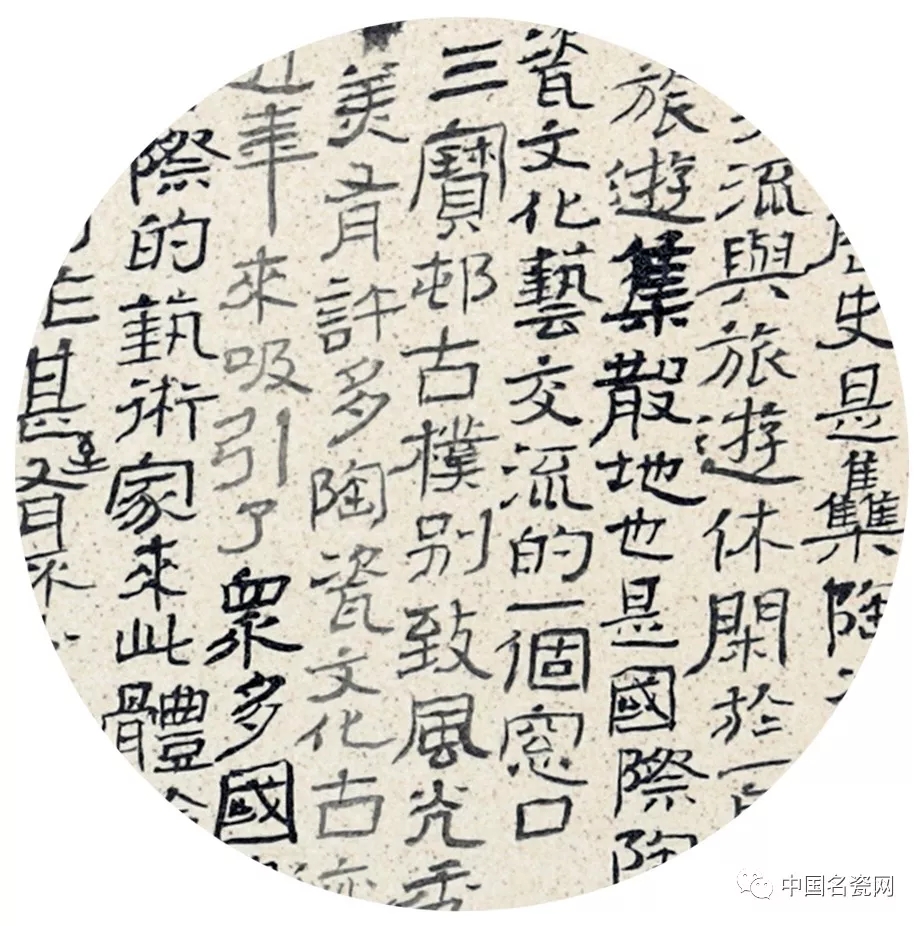 史是集陶
流與旅遊休閑於一
旅遊集散地也是國際陶
瓷文化藝交流的一個窓口
三寶邨古樸别致風光秀
美有許多陶瓷文化古
近年來吸引了衆多國
際的藝術家来此體
甚至
中国名瓷网